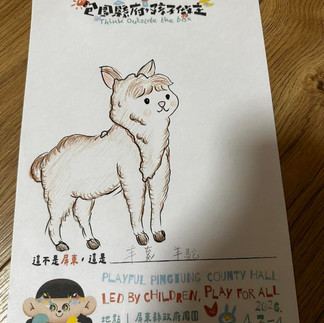 包圍縣府，孩子做主
Think Outside the bo
這不是屏東，這是 羊駝
PLAYFUL PINGTUNG COUNTY HALL
LED BY CHILDREN, PLAY FOR ALL
2026.
地點｜屏東縣政府周圍